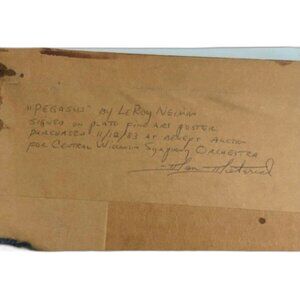 "PEGASUS" BY LEROY NEIMAN
SIGNED ON PLATE FINE ART POSTER
PURCHASED 11/12/83 AT BENEFIT AUCTION
FOR CENTRAL WISCONSIN SYMPHONY ORCHESTRA